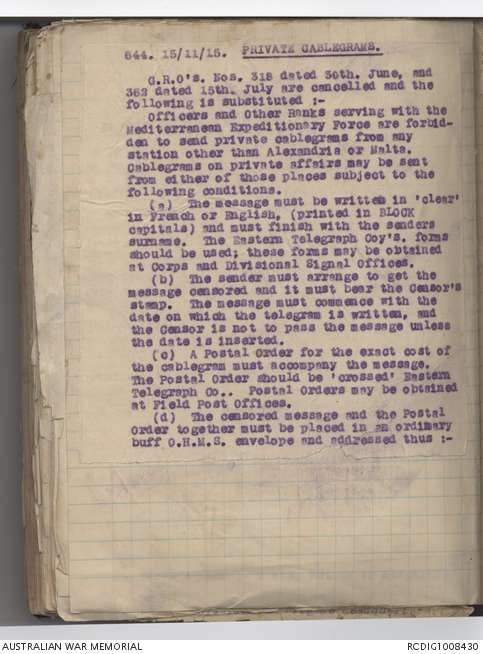 644. 15/11/15. PRIVATE CABLEGRAMS.
G.R.O's. Nos. 318 dated 30th. June, and
362 dated 15th. July are cancelled and the
following is substituted :-
Officers and Other Ranks serving with the
Mediterranean Expeditionary Force are forbid-
den to send private cablegrams from any
station other than Alexandria or Malta.
Cablegrams on private affairs may be sent
from either of those places subject to the
following conditions.
(a) The message must be written in 'clear'
in French or English, (printed in BLOCK
capitals) and must finish with the senders
surname. The Eastern Telegraph Coy's. forms
should be used; these forms may be obtained
at Corps and Divisional Signal Offices.
(b) The sender must arrange to get the
message censored and it must bear the Censor's
stamp. The message must commence with the
date on which the telegram is written, and
the Censor is not to pass the message unless
the date is inserted.
(c) A Postal Order for the exact cost of
the cablegram must accompany the message.
The Postal Order should be 'crossed' Eastern
Telegraph Co.. Postal Orders may be obtained
at Field Post Offices.
(d) The censored message and the Postal
Order together must be placed in an ordinary
buff O.H.M.S. envelope and addressed thus :-
AUSTRALIAN WAR MEMORIAL
RCDIG1008430